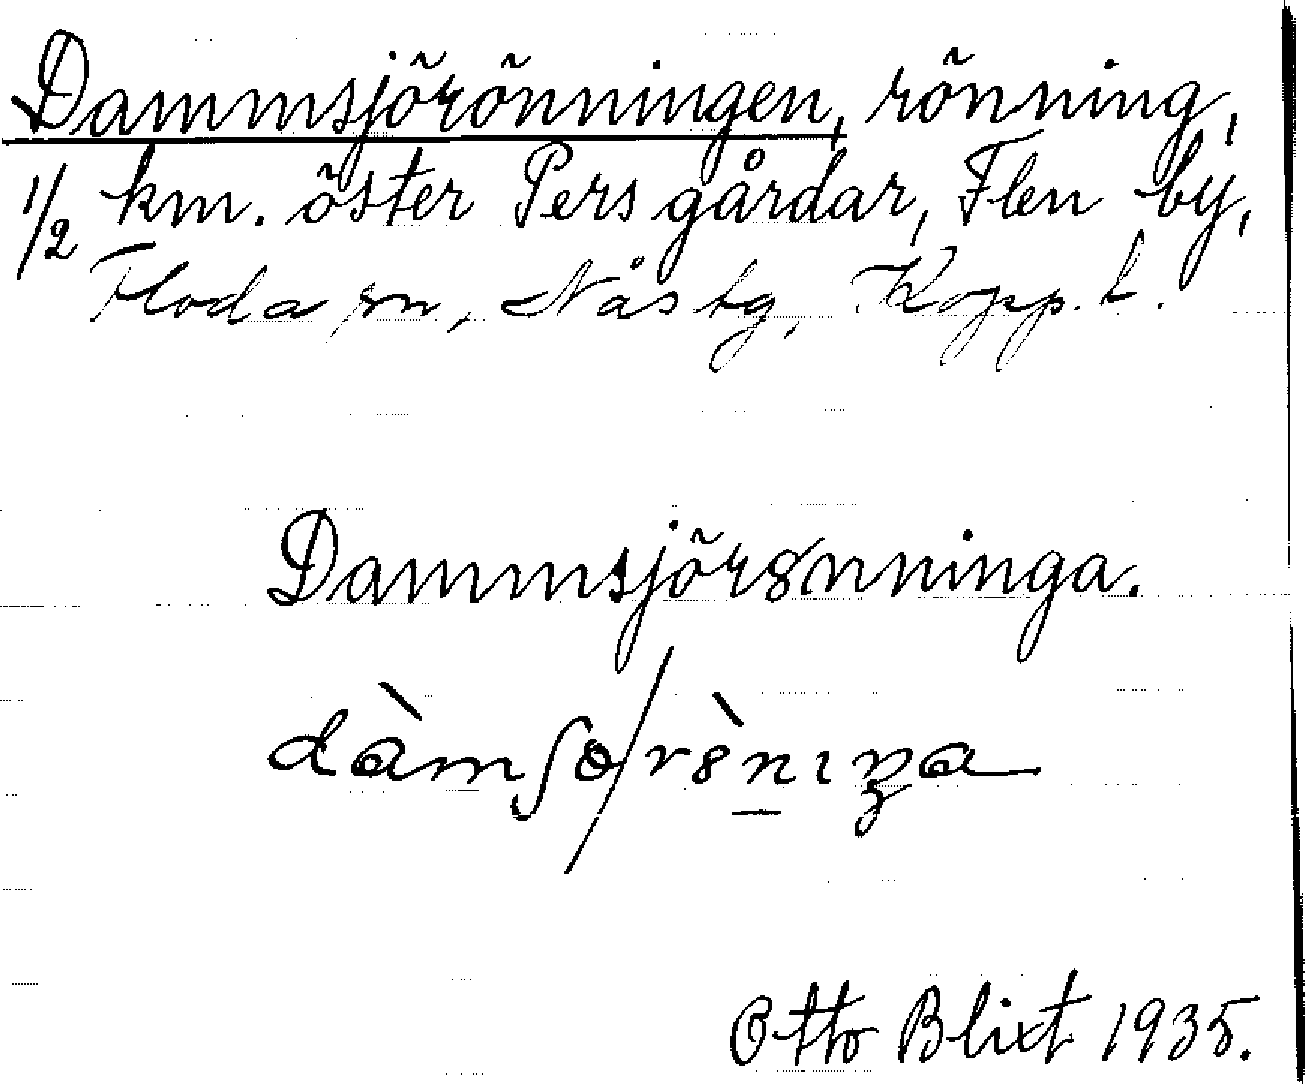 Dammsjörönningen, rönning,
1/2 km. öster Pers gårdar, Flen by,
Floda sn, Nås tg, Kopp. l.
Dammsjör8nninga.
dàmʃo/r8̀nıŋa
Otto Blixt 1935.